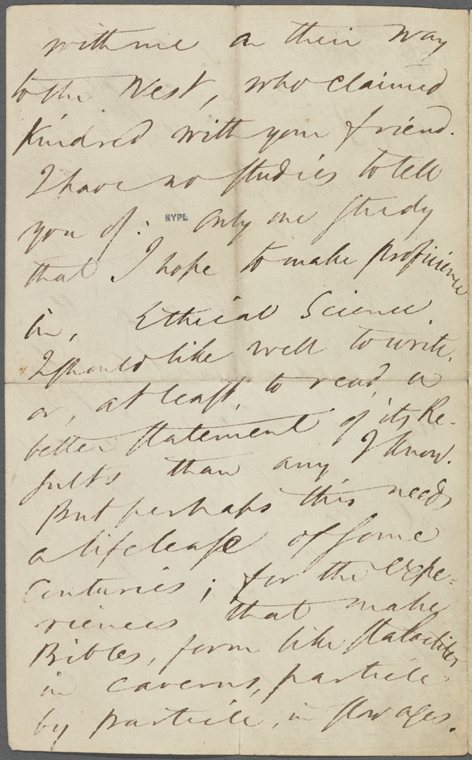 with me on their way
to the West, who claimed
kindred with your friend.
I have no studies to tell
you of: NYPL Only one study
that I hope to make proficience
in, Ethical Science
I should like well to write,
or, at least, to read, a
better statement of its Re-
sults than any I know.
But perhaps this needs
a life lease of some
Centuries; for the expe-
riences that make
Bibles, form like stalactites
in caverns, particle
by particle, in slow ages.